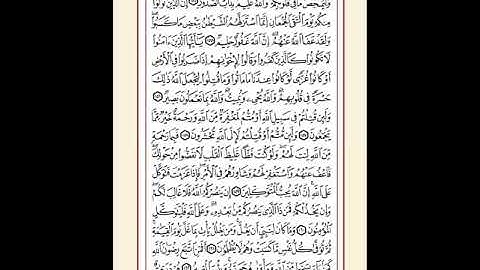 وَلِيُمَحِّصَ مَا فِي قُلُوبِكُمْ وَاللَّهُ عَلِيمٌ بِذَاتِ الصُّدُورِ ۝ إِنَّ الَّذِينَ تَوَلَّوْا
مِنكُمْ يَوْمَ الْتَقَى الْجَمْعَانِ إِنَّمَا اسْتَزَلَّهُمُ الشَّيْطَٰنُ بِبَعْضِ مَا كَسَبُوا
وَلَقَدْ عَفَا اللَّهُ عَنْهُمْ إِنَّ اللَّهَ غَفُورٌ حَلِيمٌ ۝ يَٰأَيُّهَا الَّذِينَ ءَامَنُوا
لَا تَكُونُوا كَالَّذِينَ كَفَرُوا وَقَالُوا لِإِخْوَٰنِهِمْ إِذَا ضَرَبُوا فِي الْأَرْضِ
أَوْ كَانُوا غُزًّى لَّوْ كَانُوا عِندَنَا مَا مَاتُوا وَمَا قُتِلُوا لِيَجْعَلَ اللَّهُ ذَٰلِكَ
حَسْرَةً فِي قُلُوبِهِمْ وَاللَّهُ يُحْيِۦ وَيُمِيتُ وَاللَّهُ بِمَا تَعْمَلُونَ بَصِيرٌ ۝
وَلَئِن قُتِلْتُمْ فِي سَبِيلِ اللَّهِ أَوْ مُتُّمْ لَمَغْفِرَةٌ مِّنَ اللَّهِ وَرَحْمَةٌ خَيْرٌ مِّمَّا
يَجْمَعُونَ ۝ وَلَئِن مُّتُّمْ أَوْ قُتِلْتُمْ لَإِلَى اللَّهِ تُحْشَرُونَ ۝ فَبِمَا رَحْمَةٍ
مِّنَ اللَّهِ لِنتَ لَهُمْ وَلَوْ كُنتَ فَظًّا غَلِيظَ الْقَلْبِ لَانفَضُّوا مِنْ حَوْلِكَ
فَاعْفُ عَنْهُمْ وَاسْتَغْفِرْ لَهُمْ وَشَاوِرْهُمْ فِي الْأَمْرِ فَإِذَا عَزَمْتَ فَتَوَكَّلْ
عَلَى اللَّهِ إِنَّ اللَّهَ يُحِبُّ الْمُتَوَكِّلِينَ ۝ إِن يَنصُرْكُمُ اللَّهُ فَلَا غَالِبَ لَكُمْ
وَإِن يَخْذُلْكُمْ فَمَن ذَا الَّذِي يَنصُرُكُم مِّن بَعْدِهِۦ وَعَلَى اللَّهِ فَلْيَتَوَكَّلِ
الْمُؤْمِنُونَ ۝ وَمَا كَانَ لِنَبِيٍّ أَن يَغُلَّ وَمَن يَغْلُلْ يَأْتِ بِمَا غَلَّ يَوْمَ الْقِيَٰمَةِ
ثُمَّ تُوَفَّىٰ كُلُّ نَفْسٍ مَّا كَسَبَتْ وَهُمْ لَا يُظْلَمُونَ ۝ أَفَمَنِ اتَّبَعَ رِضْوَٰنَ اللَّهِ
كَمَنۢ بَاءَ بِسَخَطٍ مِّنَ اللَّهِ وَمَأْوَىٰهُ جَهَنَّمُ وَبِئْسَ الْمَصِيرُ ۝